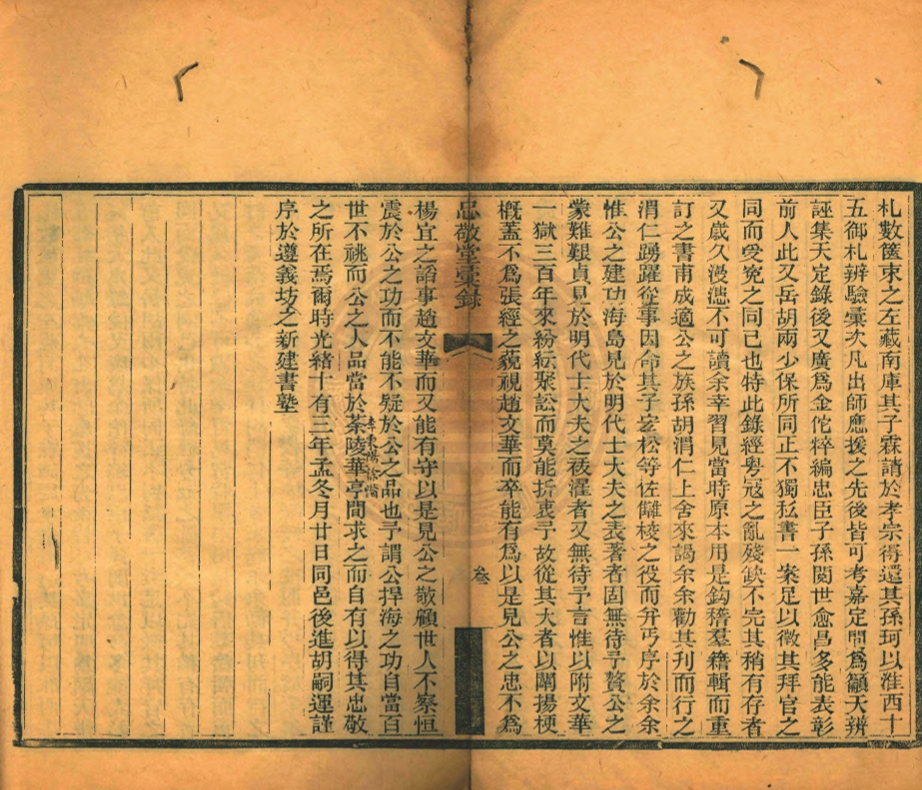 札數篋束之左藏南庫其子霖請於孝宗得還其孫珂以淮西十
五御札辨驗彙次凡出師應援之先後皆可考嘉定間為籲天辨
誣集天定錄後又廣為金佗稡編忠臣子孫閱世愈昌多能表彰
前人此又岳胡兩少保所同正不獨秘書一案足以徵其拜官之
同而受冤之同已也特此錄經粵寇之亂殘缺不完其稍有存者
又歲久漫漶不可讀余幸習見當時原本用是鈎稽羣籍輯而重
訂之書甫成適公之族孫胡渭仁上舍來謁余余勸其刊而行之
渭仁踴躍從事因命其子宏松等佐讎棱之役而弁丐序於余余
惟公之建功海島見於明代士大夫之表著者固無待予贅公之
蒙難艱貞見於明代士大夫之祓濯者又無待予言惟以附文華
一獄三百年來紛紜聚訟而莫能折衷予故從其大者以闡揚梗
概蓋不為張經之藐視趙文華而卒能有為以是見公之忠不為
忠敬堂彙錄
叁
楊宜之諂事趙文華而又能有守以是見公之敬顧世人不察恒
震於公之功而不能不疑於公之品也予謂公捍海之功自當百
世不祧而公之人品當於茶陵華亭間求之而自有以得其忠敬
李東陽徐階
之所在焉爾時光緒十有三年孟冬月廿日同邑後進胡嗣運謹
序於遵義坊之新建書塾